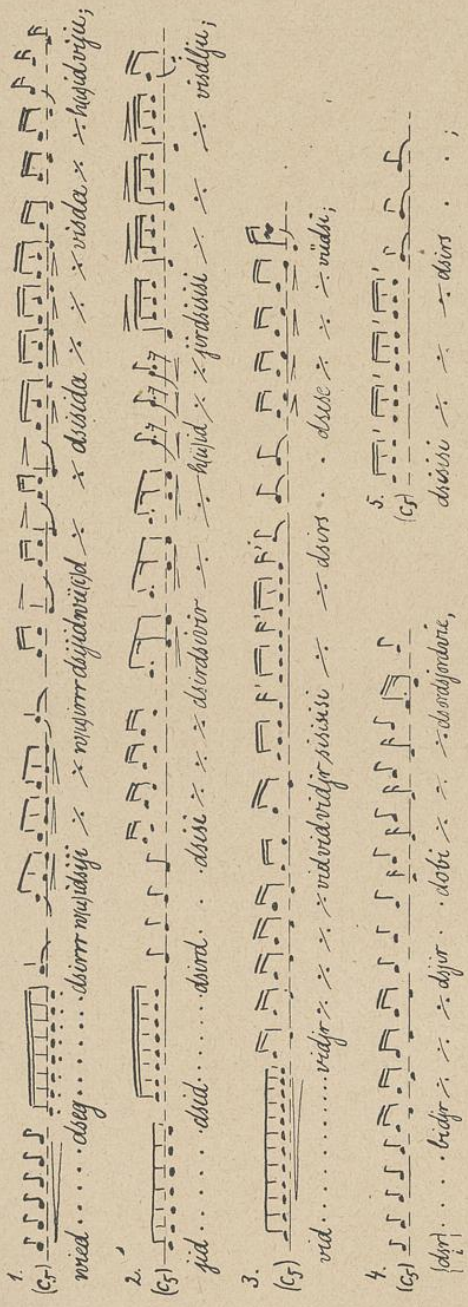 1.
(c₅)
nried · · · · · dseg · · · · · · · · dsirrr n(u)idsiji ⁒ ⁒ n(u)irrr dsijidnrii(c)d ⁒ ⁒ dsisida ⁒ ⁒ ⁒ visda ⁒ ⁒ h(u)idviju;
2.
(c₅)
jid · · · · · · dsid · · · · · · · dsird · · · dsisi ⁒ ⁒ ⁒ dsirdsivir ⁒ ⁒ h(u)id ⁒ ⁒ jürdsisisi ⁒ ⁒ ⁒ visdlju;
3.
(c₅)
vid · · · · · · · · · · · vidjr ⁒ ⁒ ⁒ ⁒ vidvidvidjr sisisisi ⁒ ⁒ dsirs · · dsise ⁒ ⁒ ⁒ viidsi;
4.
(c₅)
(dsr) · · · · bidjr ⁒ ⁒ ⁒ dsjir · · dobi ⁒ ⁒ ⁒ dsordsjordvre,
5.
(c₅)
dsisisi ⁒ ⁒ ⁒ dsirs · · ;